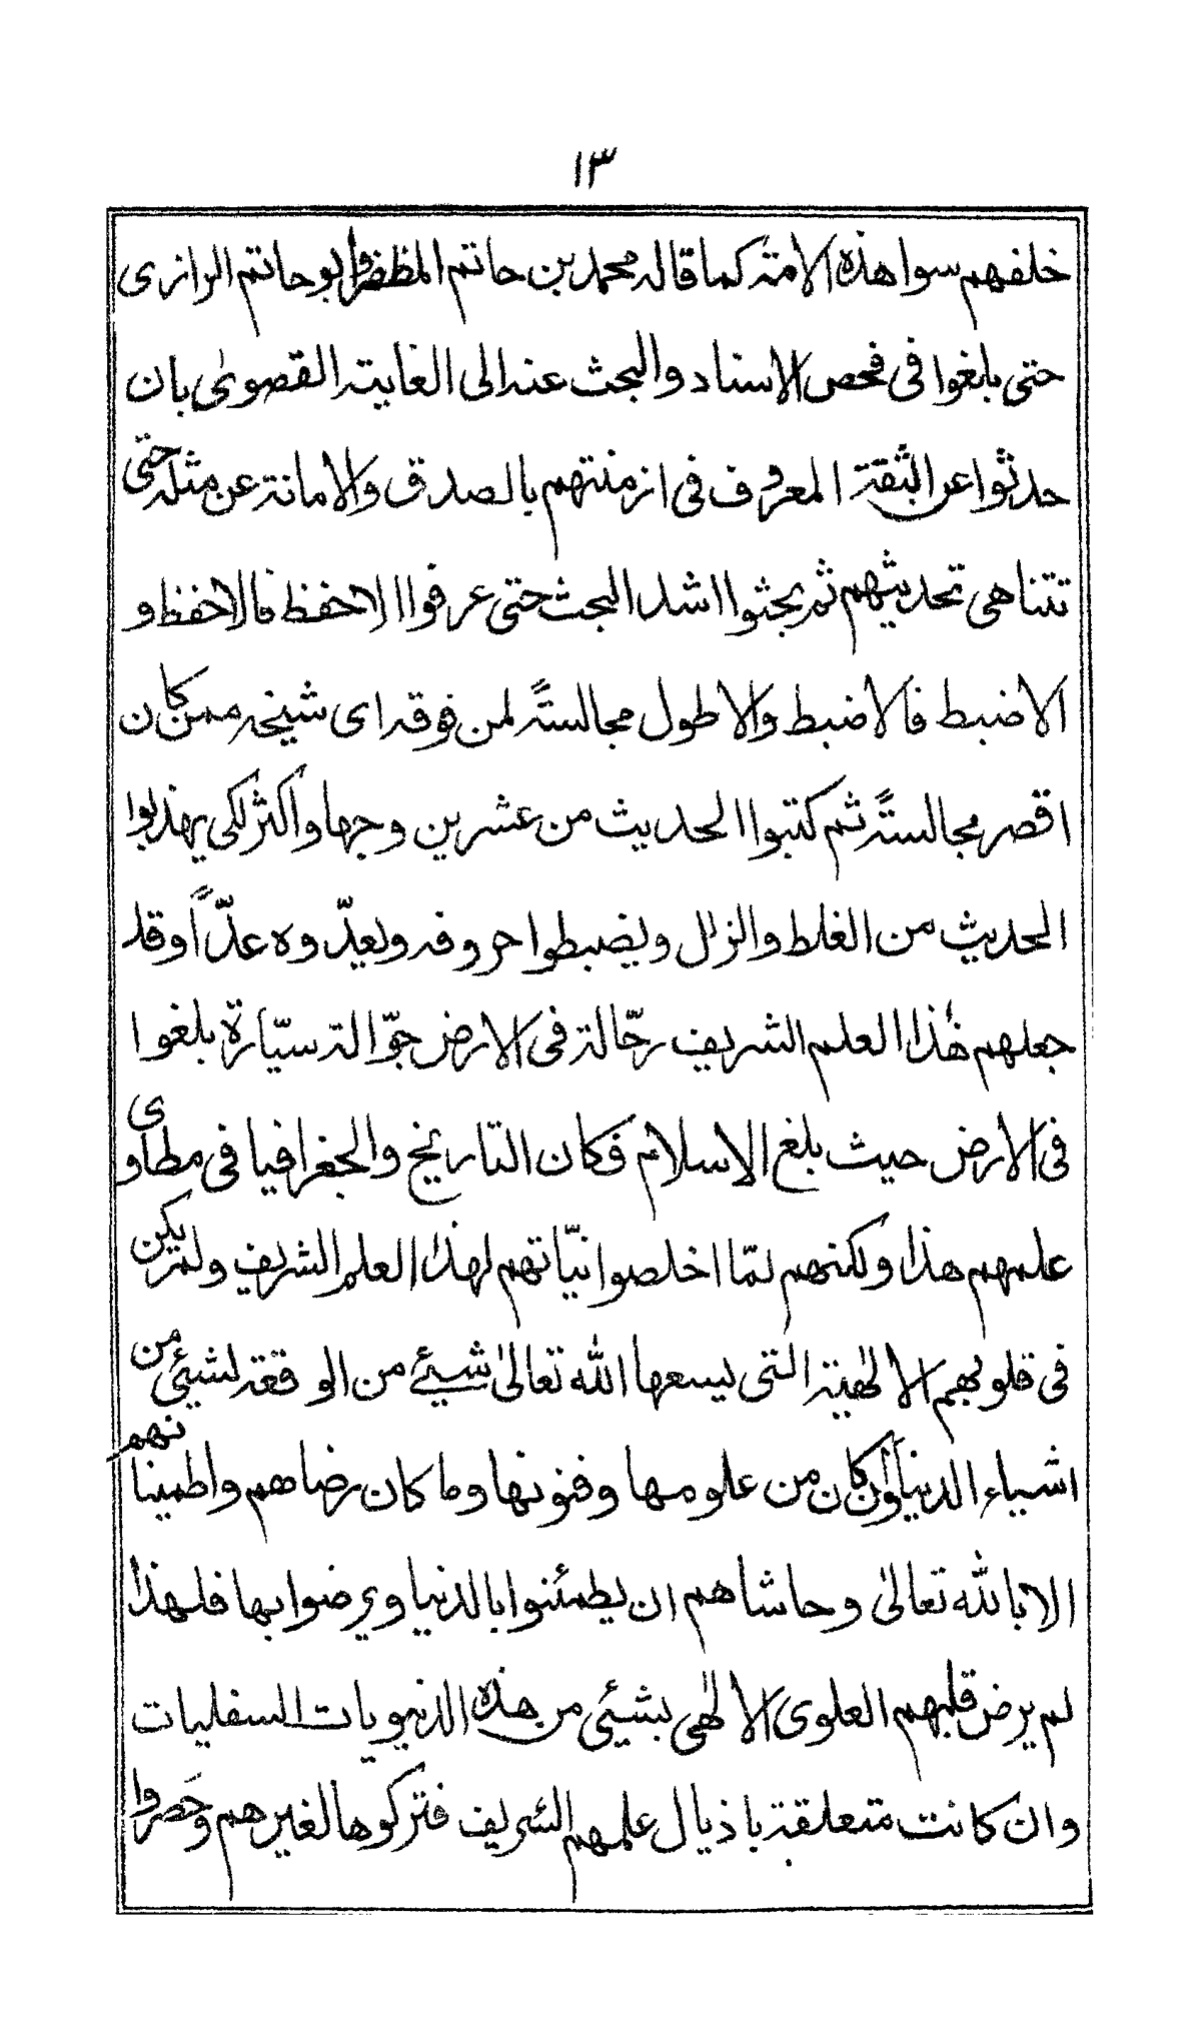 ١٣
خلفهم سوا هذه الامة كما قاله محمد بن حاتم المظفر وابو حاتم الرازى
حتى بلغوا فى فحص الاسناد والبحث عنه الى الغاية القصوىٰ بان
حدثوا عن الثقة المعروف فى ازمنتهم بالصدق والامانة عن مثله حتى
تتناهى تحديثهم ثم بحثوا اشد البحث حتى عرفوا الاحفظ فالاحفظ و
الاضبط فالاضبط والاطول مجالسةً لمن فوقه اى شيخه ممن كان
اقصر مجالسةً ثم كتبوا الحديث من عشرين وجها واكثر لكى يهذبوا
الحديث من الغلط والزلل ويضبطوا حروفه ويعدّوه عدّاً وقد
جعلهم هٰذا العلم الشريف رحّالة فى الارض جوّالة سيّارة بلغوا
فى الارض حيث بلغ الاسلام فكان التاريخ والجغرافيا فى مطاوى
علمهم هذا ولكنهم لمّا اخلصوا نيّاتهم لهذا العلم الشريف ولم يكن
فى قلوبهم الالٰهية التى يسعها الله تعالىٰ شيئ من الوقعة لشيئ من
اشياء الدنيا وان كان من علومها وفنونها وما كان رضاهم واطمينانهم
الا بالله تعالىٰ وحاشاهم ان يطمئنوا بالدنيا ويرضوا بها فلهذا
لم يرض قلبهم العلوى الالٰهى بشيئ من هذه الدنيويات السفليات
وان كانت متعلقة باذيال علمهم الشريف فتركوها لغيرهم وحَصروا